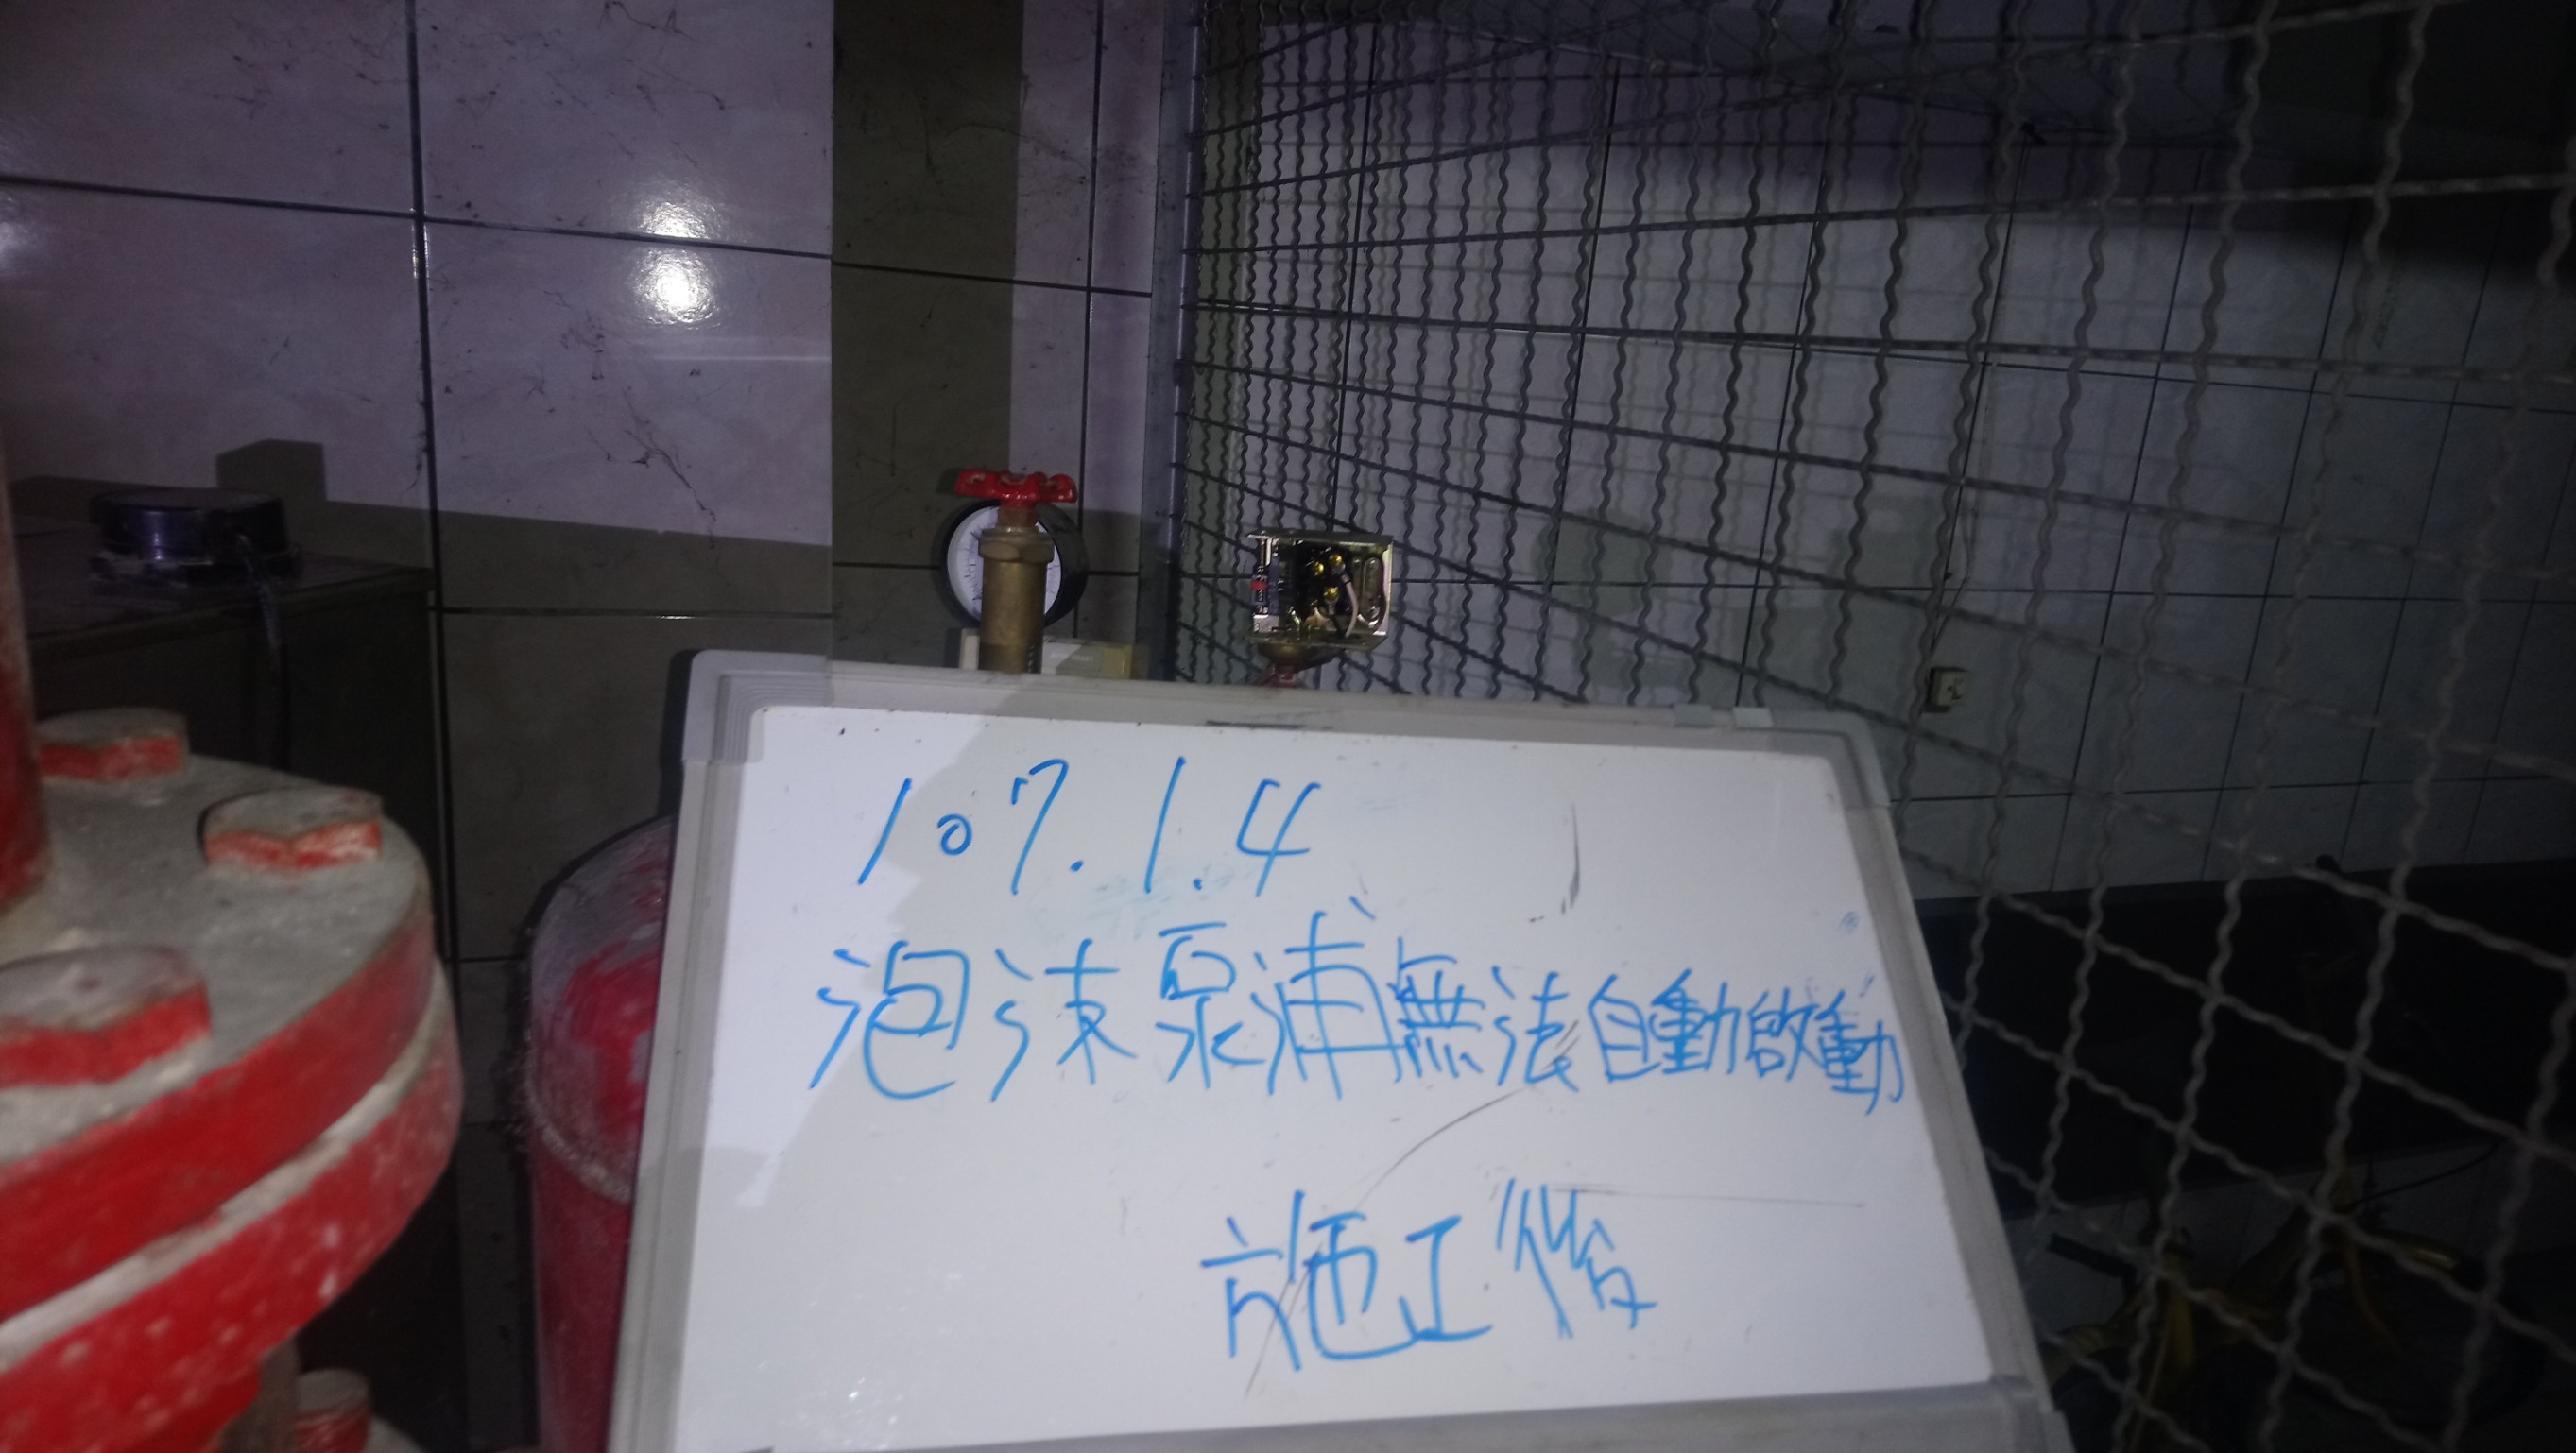 107.1.4
泡沫泵浦無法自動啟動
施工後